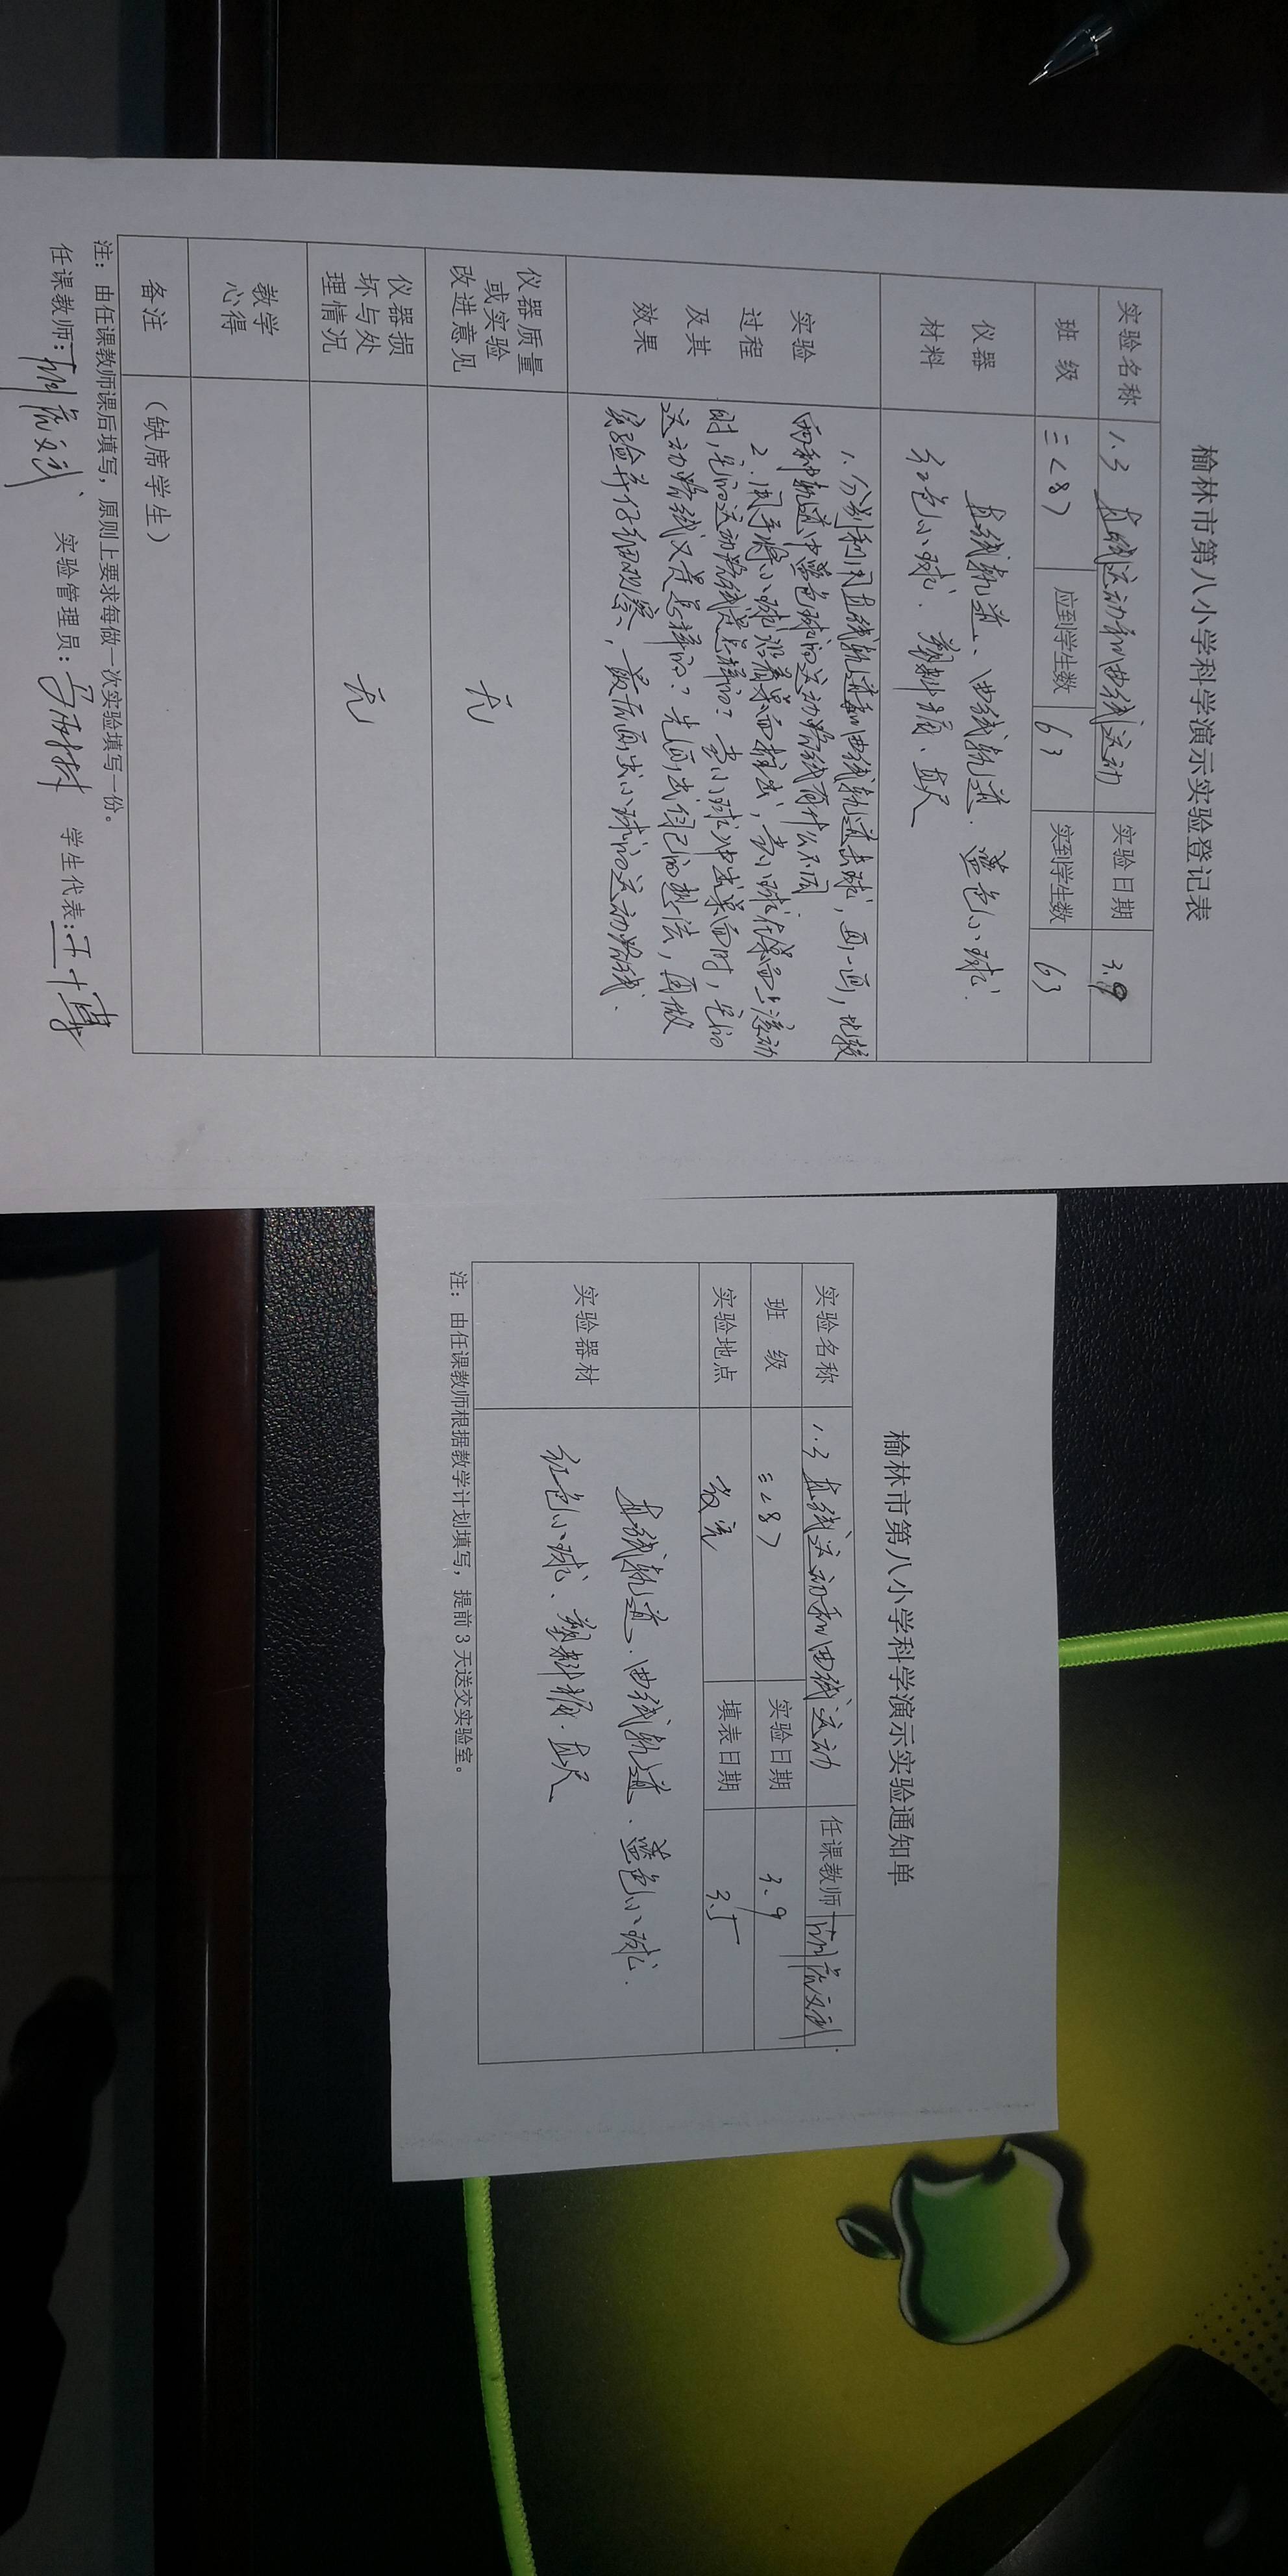 榆林市第八小学科学演示实验登记表
实验名称 1.3 直线运动和曲线运动 实验日期 3.9
班 级 三<8> 应到学生数 63 实到学生数 63
仪器
材料
直线轨道、曲线轨道、蓝色小球、
红色小球、塑料桶、直尺
实验
过程
及其
效果
1.分别利用直线轨道和曲线轨道击球,画一画,比较
两种轨道中蓝色球的运动路线有什么不同
2.用手将小球沿着桌面推出,当小球在桌面上滚动
时,它的运动路线是怎样的?当小球冲出桌面时,它的
运动路线又是怎样的?先画出自己的想法,再做
实验并仔细观察,最后画出小球的运动路线.
仪器质量
或实验
改进意见
无
仪器损
坏与处
理情况
无
教学
心得
备注 (缺席学生)
注:由任课教师课后填写,原则上要求每做一次实验填写一份。
任课教师: 实验管理员: 学生代表:王十博
榆林市第八小学科学演示实验通知单
实验名称 1.3 直线运动和曲线运动 任课教师
班 级 三<8> 实验日期 3.9
实验地点 教室 填表日期 3.5
实验器材
直线轨道、曲线轨道、蓝色小球、
红色小球、塑料桶、直尺
注:由任课教师根据教学计划填写,提前 3 天送交实验室。